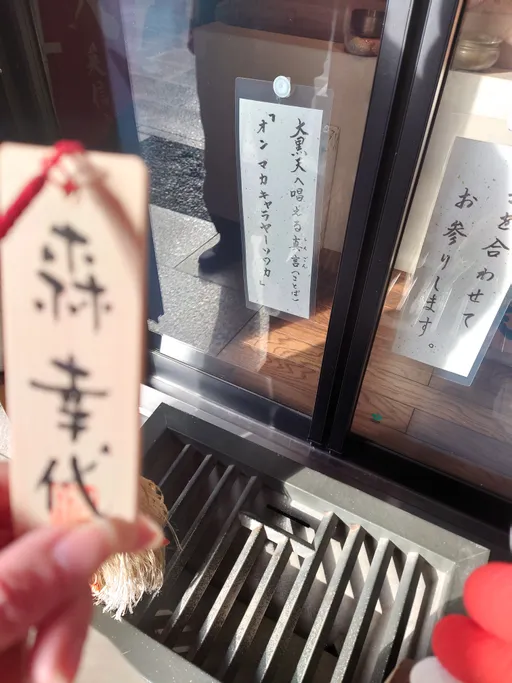 森 幸代
大黒天へ唱える真言（ことば）
しんごん
「オン マカキャラヤ ソワカ」
を合わせて
お参りします。